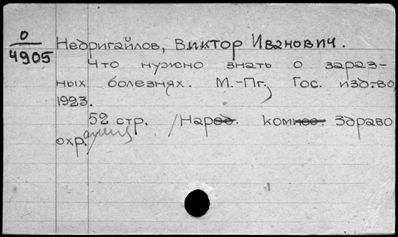 О
4905
Недригайлов, Виктор Иванович.
Что нужно знать о зараз-
ных болезнях. М.-Пг. Гос. изд-во,
1923.
52 стр. /Народ. комис. Здраво
охр.